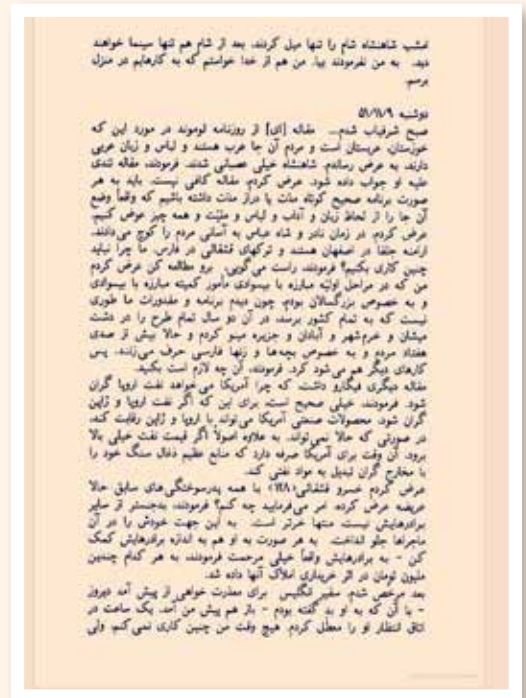 امشب شاهنشاه شام را تنها میل کردند. بعد از شام هم تنها سینما خواهند
دید. به من نفرمودند بیا. من هم از خدا خواستم که به کارهایم در منزل
برسم.
دوشنبه ۵۱/۱۱/۹
صبح شرفیاب شدم... مقاله [ای] از روزنامه لوموند در مورد این که
خوزستان، عربستان است و مردم آن جا عرب هستند و لباس و زبان عربی
دارند، به عرض رساندم. شاهنشاه خیلی عصبانی شدند. فرمودند، مقاله تندی
علیه او جواب داده شود. عرض کردم، مقاله کافی نیست. باید به هر
صورت برنامه صحیح کوتاه مدت یا دراز مدت داشته باشیم که واقعاً وضع
آن جا را از لحاظ زبان و آداب و لباس و ملیّت و همه چیز عوض کنیم.
عرض کردم، در زمان نادر و شاه عباس به آسانی مردم را کوچ می‌دادند.
ارامنه جلفا در اصفهان هستند و ترکهای قشقائی در فارس. ما چرا نباید
چنین کاری بکنیم؟ فرمودند، راست می‌گویی، برو مطالعه کن عرض کردم
من که در مراحل اولیّه مبارزه با بیسوادی مأمور کمیته مبارزه با بیسوادی
و به خصوص بزرگسالان بودم، چون دیدم برنامه و مقدورات ما طوری
نیست که به تمام کشور برسد، در آن دو سال تمام طرح را در دشت
میشان و خرم‌شهر و آبادان و جزیره مینو کردم و حالا بیش از صدی
هفتاد مردم و به خصوص بچه‌ها و زنها فارسی حرف می‌زنند. پس
کارهای دیگر هم می‌شود کرد. فرمودند، آن چه لازم است بکنید.
مقاله دیگری فیگارو داشت، که چرا آمریکا می‌خواهد نفت اروپا گران
شود. فرمودند، خیلی صحیح است، برای این که اگر نفت اروپا و ژاپن
گران شود، محصولات صنعتی آمریکا می‌تواند با اروپا و ژاپن رقابت کند،
در صورتی که حالا نمی‌تواند. به علاوه اصولاً اگر قیمت نفت خیلی بالا
برود، آن وقت برای آمریکا صرفه دارد که منابع عظیم ذغال سنگ خود را
با مخارج گران تبدیل به مواد نفتی کند.
عرض کردم خسرو قشقائی(۱۲۸) با همه پدرسوختگی‌های سابق حالا
عریضه عرض کرده، امر می‌فرمایید چه کنم؟ فرمودند، بدجنس‌تر از سایر
برادرهایش نیست، منتها خرتر است. به این جهت خودش را در آن
ماجراها جلو انداخت. به هر صورت به او هم به اندازه برادرهایش کمک
کن - به برادرهایش واقعاً خیلی مرحمت فرمودند، به هر کدام چندین
ملیون تومان در اثر خریداری املاک آنها داده شد.
بعد مرخص شدم، سفیر انگلیس برای معذرت خواهی از پیش آمد دیروز
- با آن که به او بد گفته بودم - باز هم پیش من آمد. یک ساعت در
اتاق انتظار او را معطّل کردم. هیچ وقت من چنین کاری نمی‌کنم، ولی